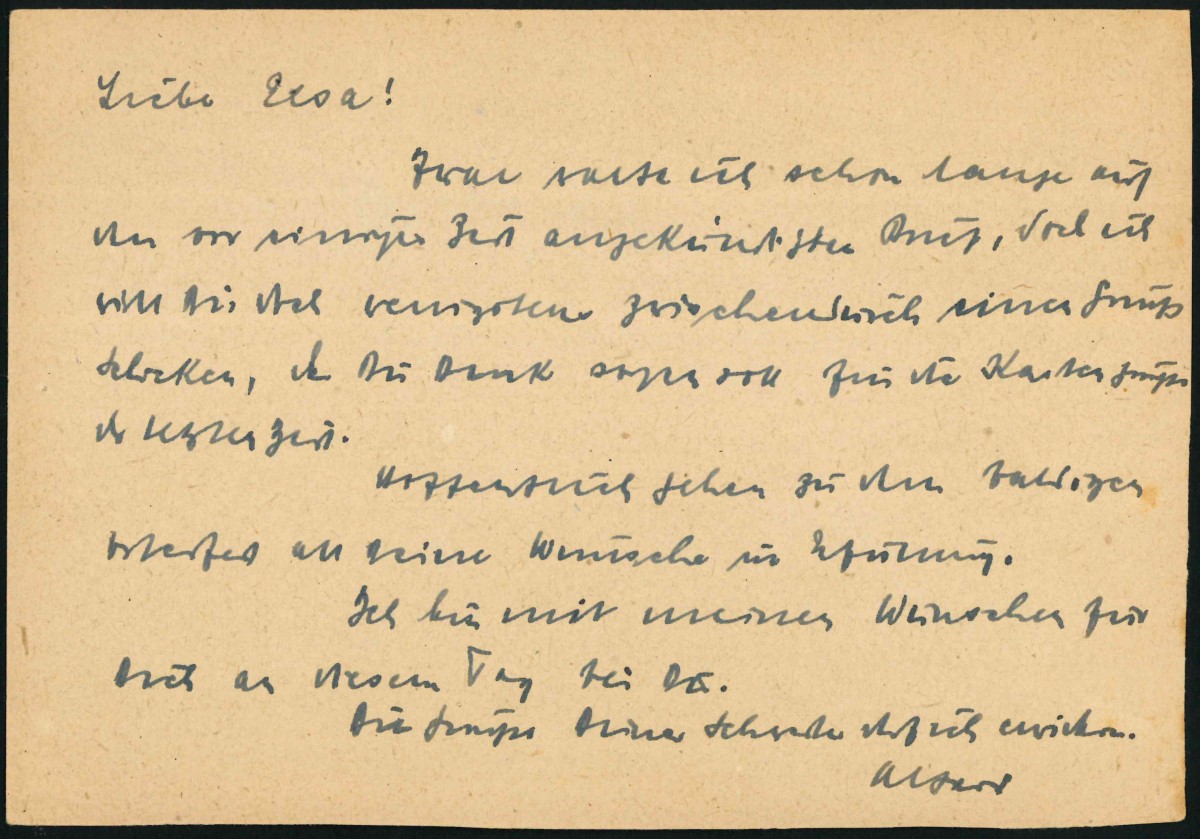 Liebe Elsa!
Zwar warte ich schon lange auf
den vor einiger Zeit angekündigten Brief, doch ich
will Dir doch wenigstens zwischendurch einen Gruß
schicken, der Dir Dank sagen soll für die Kartengrüße
der letzten Zeit.
Hoffentlich gehen zu dem baldigen
Osterfest all Deine Wünsche in Erfüllung.
Ich bin mit meinen Wünschen für
Dich an diesem Tag bei Dir.
Die Grüße Deiner Schwester darf ich erwidern.